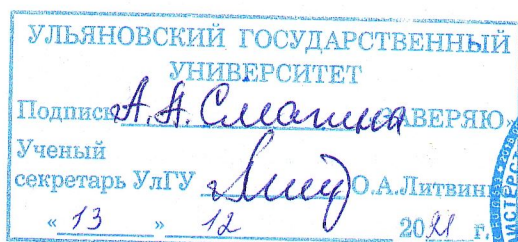 УЛЬЯНОВСКИЙ ГОСУДАРСТВЕННЫЙ
УНИВЕРСИТЕТ
Подпись А.А. Смагина ЗАВЕРЯЮ»
Ученый
секретарь УлГУ О.А.Литвин
« 13 » 12 2021 г.